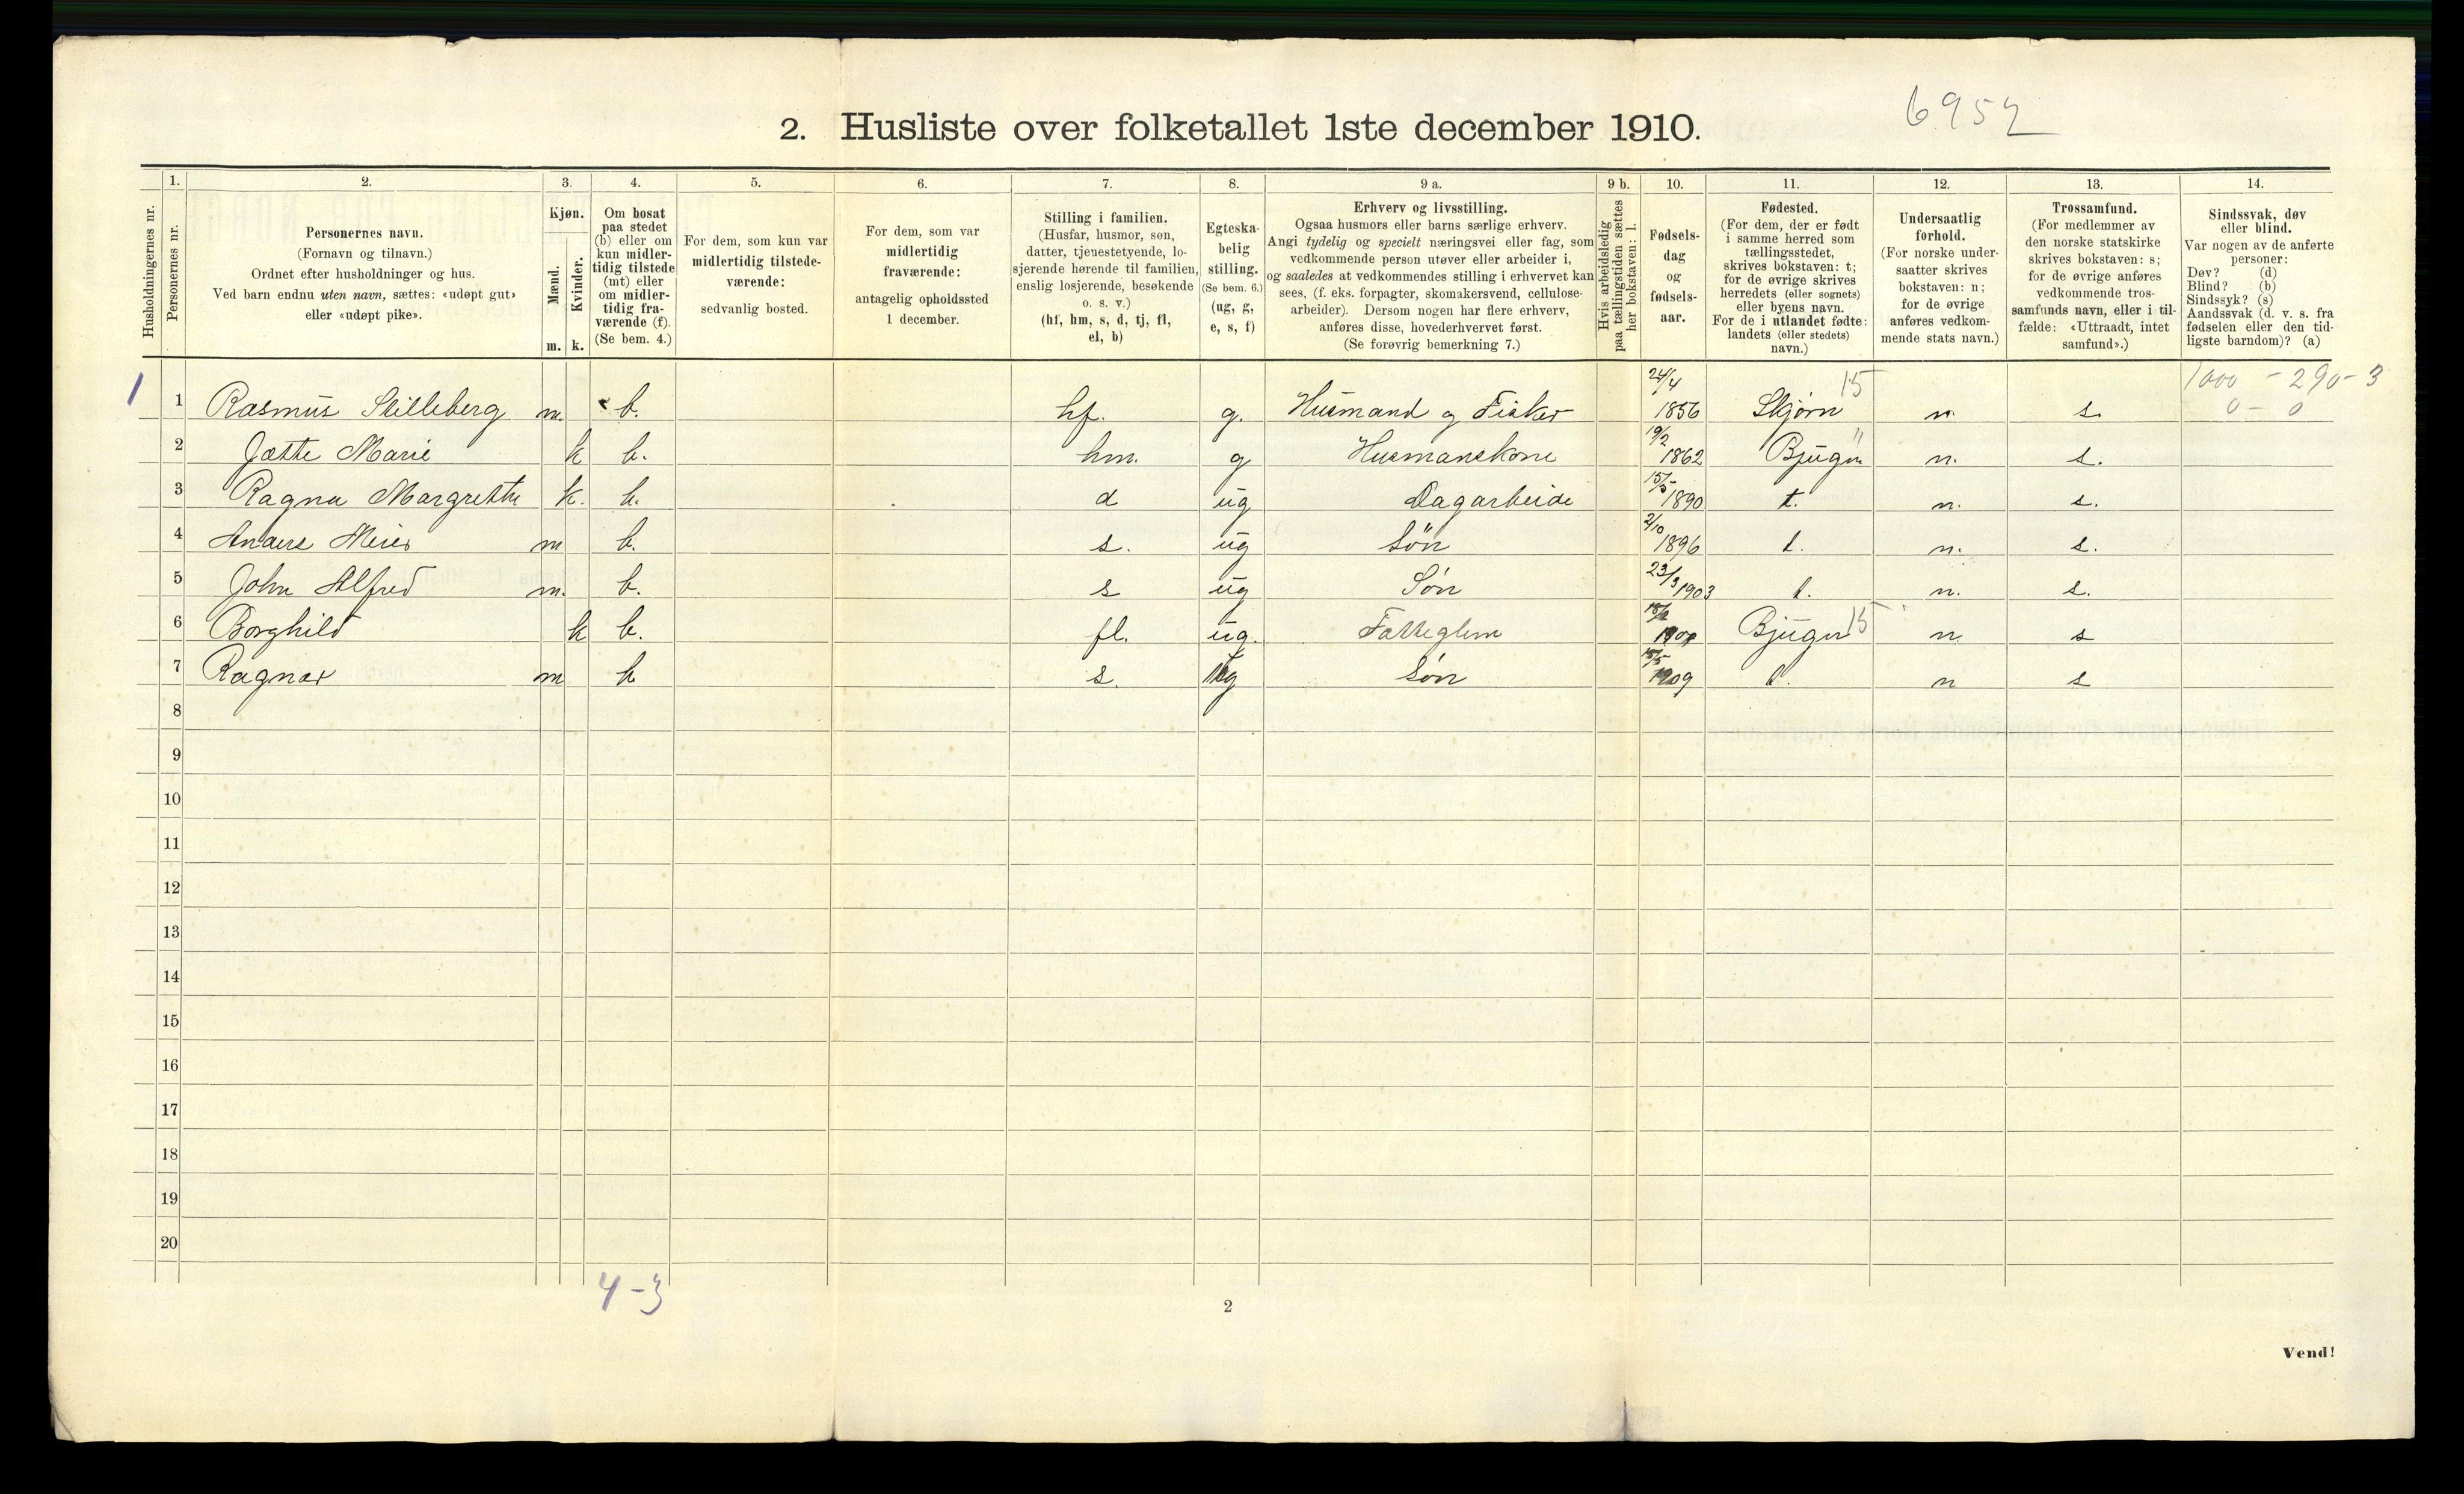 6952
2. Husliste over folketallet 1ste december 1910.
1. 2. 3. 4. 5. 6. 7. 8. 9 a. 9 b. 10. 11. 12. 13. 14.
Husholdningernes nr.
Personernes nr.
Personernes navn.
(Fornavn og tilnavn.)
Ordnet efter husholdninger og hus.
Ved barn endnu uten navn, sættes: «udøpt gut»
eller «udøpt pike».
Kjøn.
Mænd.
Kvinder.
m. k.
Om bosat
paa stedet
(b) eller om
kun midler-
tidig tilstede
(mt) eller
om midler-
tidig fra-
værende (f).
(Se bem. 4.)
For dem, som kun var
midlertidig tilstede-
værende:
sedvanlig bosted.
For dem, som var
midlertidig
fraværende:
antagelig opholdssted
1 december.
Stilling i familien.
(Husfar, husmor, søn,
datter, tjenestetyende, lo-
sjerende hørende til familien,
enslig losjerende, besøkende
o. s. v.)
(hf, hm, s, d, tj, fl,
el, b)
Egteska-
belig
stilling.
(Se bem. 6.)
(ug, g,
e, s, f)
Erhverv og livsstilling.
Ogsaa husmors eller barns særlige erhverv.
Angi tydelig og specielt næringsvei eller fag, som
vedkommende person utøver eller arbeider i,
og saaledes at vedkommendes stilling i erhvervet kan
sees, (f. eks. forpagter, skomakersvend, cellulose-
arbeider). Dersom nogen har flere erhverv,
anføres disse, hovederhvervet først.
(Se forøvrig bemerkning 7.)
Hvis arbeidsledig
paa tællingstiden sættes
her bokstaven: l.
Fødsels-
dag
og
fødsels-
aar.
Fødested.
(For dem, der er født
i samme herred som
tællingsstedet,
skrives bokstaven: t;
for de øvrige skrives
herredets (eller sognets)
eller byens navn.
For de i utlandet fødte:
landets (eller stedets)
navn.)
Undersaatlig
forhold.
(For norske under-
saatter skrives
bokstaven: n;
for de øvrige
anføres vedkom-
mende stats navn.)
Trossamfund.
(For medlemmer av
den norske statskirke
skrives bokstaven: s;
for de øvrige anføres
vedkommende tros-
samfunds navn, eller i til-
fælde: «Uttraadt, intet
samfund».)
Sindssvak, døv
eller blind.
Var nogen av de anførte
personer:
Døv? (d)
Blind? (b)
Sindssyk? (s)
Aandssvak (d. v. s. fra
fødselen eller den tid-
ligste barndom)? (a)
24/4 15 1000 - 290 - 3
1 1 Rasmus Skilleberg m. b. hf. g. Husmand og Fisker 1856 Skjørn n. s. 0 - 0
2 Jætte Marie k b. hm. g Husmanskone 19/2 1862 Bjugn " n. s.
3 Ragna Margrethe k. b. d ug Dagarbeide 15/5 1890 t. n. s.
4 Anders Meier m b. s. ug Søn 2/10 1896 t. n. s.
5 John Alfred m. b. s ug Søn 23/3 1903 t. n. s.
6 Borghild k b. fl. ug. Bjugn 15 n s
7 Ragnar m b s. ug Søn 15/5 1909 t. n s
8
9
10
11
12
13
14
15
16
17
18
19
20
4-3
2
Vend!